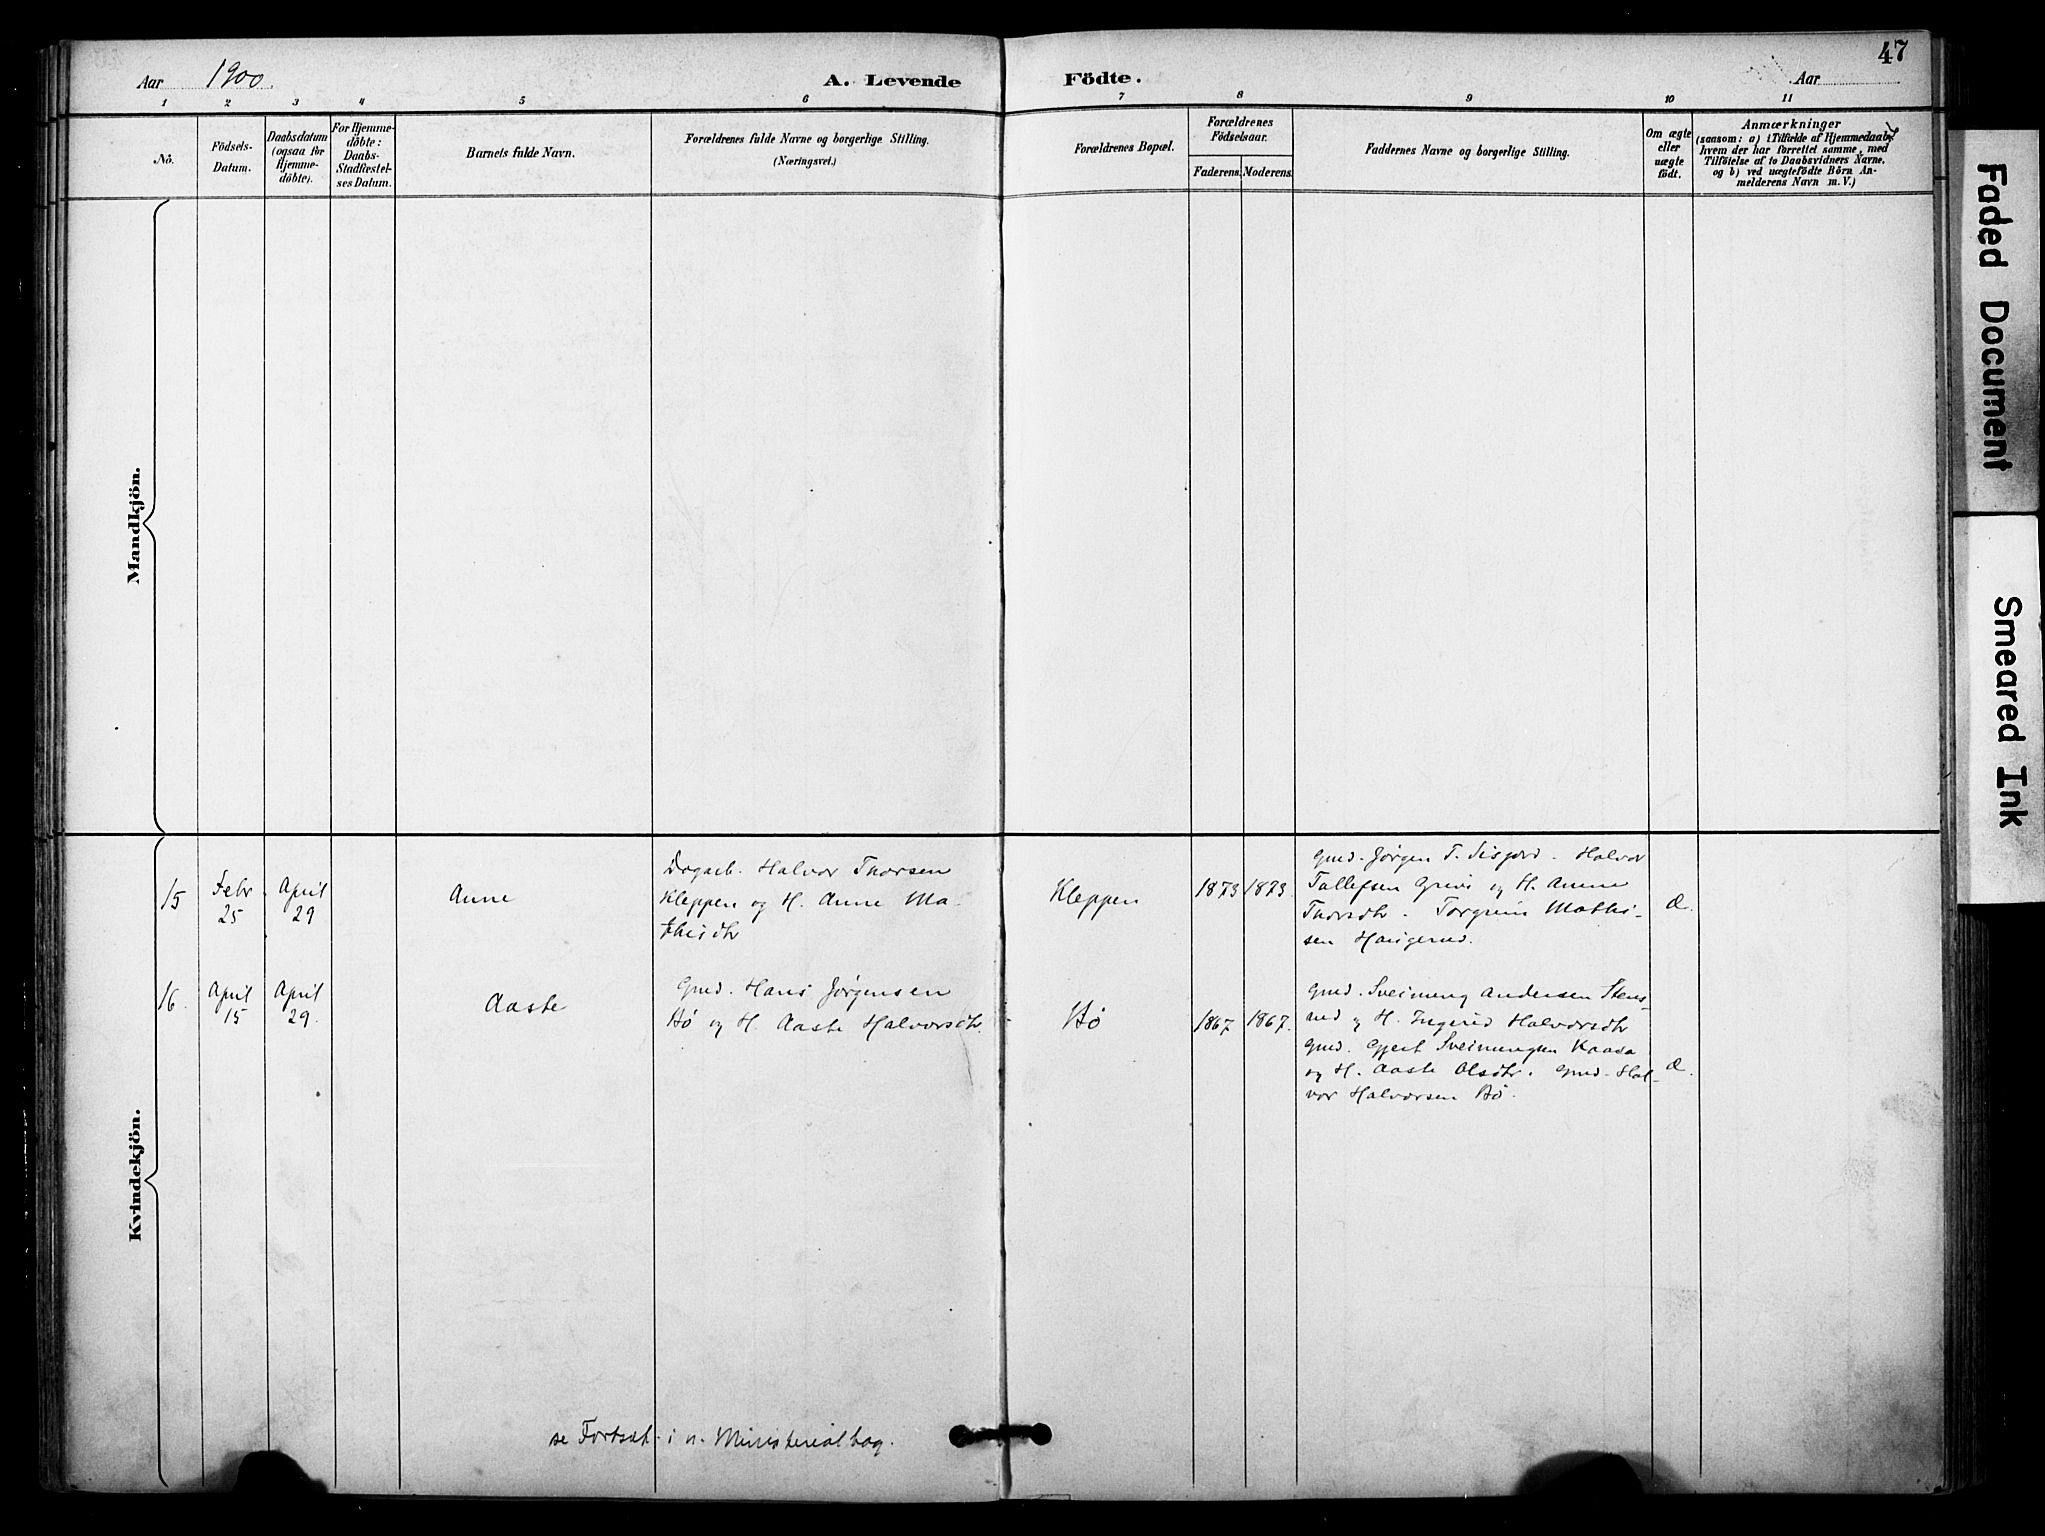 47
Aar 1900.
A. Levende
Födte.
Aar
1 2 3 4 5 6 7 8 9 10 11
No.
Födsels-
Datum.
Daabsdatum
(ogsaa for
Hjemme-
döbte).
For Hjemme-
döbte:
Daabs-
Stadfæstel-
ses Datum.
Barnets fulde Navn.
Forældrenes fulde Navne og borgerlige Stilling.
(Næringsvei.)
Forældrenes Bopæl.
Forældrenes
Födselsaar.
Faderens. Moderens.
Faddernes Navne og borgerlige Stilling.
Om ægte
eller
uægte
födt.
Anmærkninger
(saasom: a) i Tilfælde af Hjemmedaab,
hvem der har forrettet samme, med
Tilföielse af to Daabsvidners Navne,
og b) ved uægtefödte Börn An-
melderens Navn m. V.)
Mandkjön.
Kvindekjön.
15
Febr
25
April
29
Anne
Dagarb. Halvor Thorsen
Kleppen og H. Anne Ma-
thisdtr
Kleppen
1873 1873.
Gmd. Jørgen T. Sisjord. Halvor
Tallefsen Grivi og H. Anne
Thorsdtr. Torgrim Mathi-
sen Haugerud.
Æ.
16.
April
15
April
29.
Aaste
Gmd. Hans Jørgensen
Bø og H. Aaste Halvorsdtr.
Bø
1867 1867.
Gmd. Sveinung Andersen Stens-
rud og H. Ingerid Halvorsdtr
Gmd. Gjert Sveinungsen Kaasa
og H. Aaste Olsdtr. Gmd. Hal-
vor Halvorsen Bø.
Æ.
se Fortsæt. i n. Ministerialbog.
Faded Document
Smeared Ink